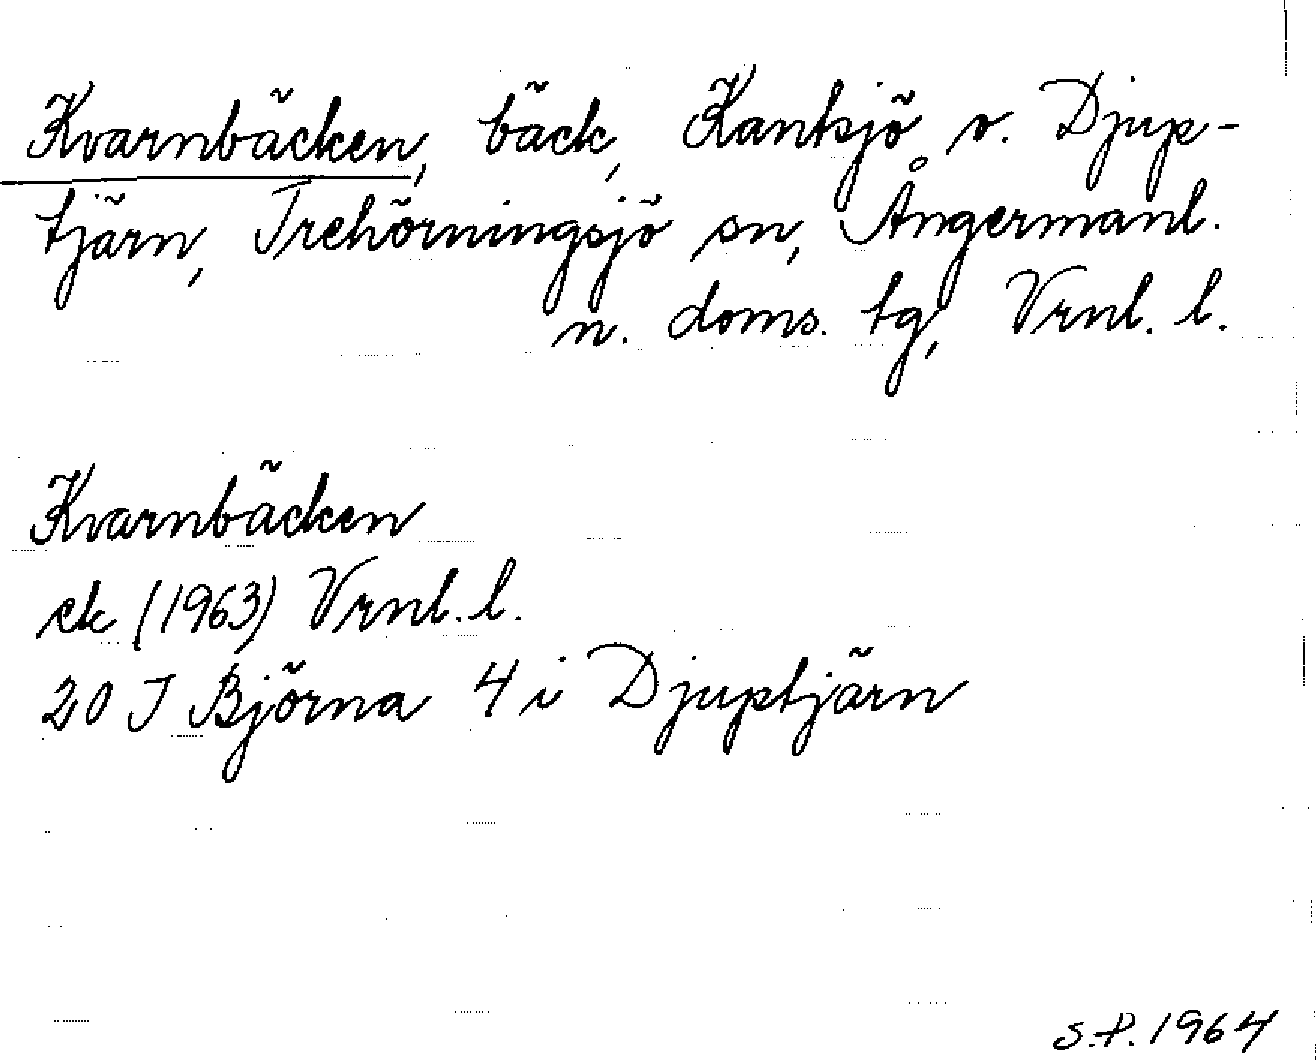 Kvarnbäcken, bäck, Kanksjö o. Djup-
tjärn, Trehörningsjö sn, Ångermanl.
n. doms. tg, Vrnl. l.
Kvarnbäcken
ek (1963) Vrnl. l.
20 J Björna 4 i Djuptjärn
S.P. 1964